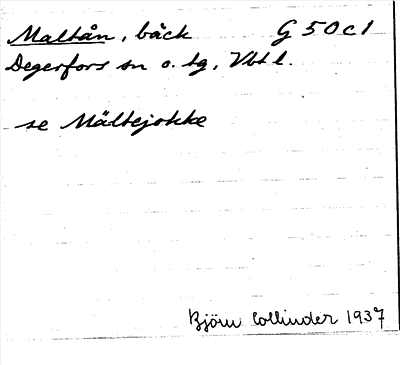 Maltån, bäck G 50 c 1
Degerfors sn o. tg, Vbtl.
se Mältejokke
Björn Collinder 1937